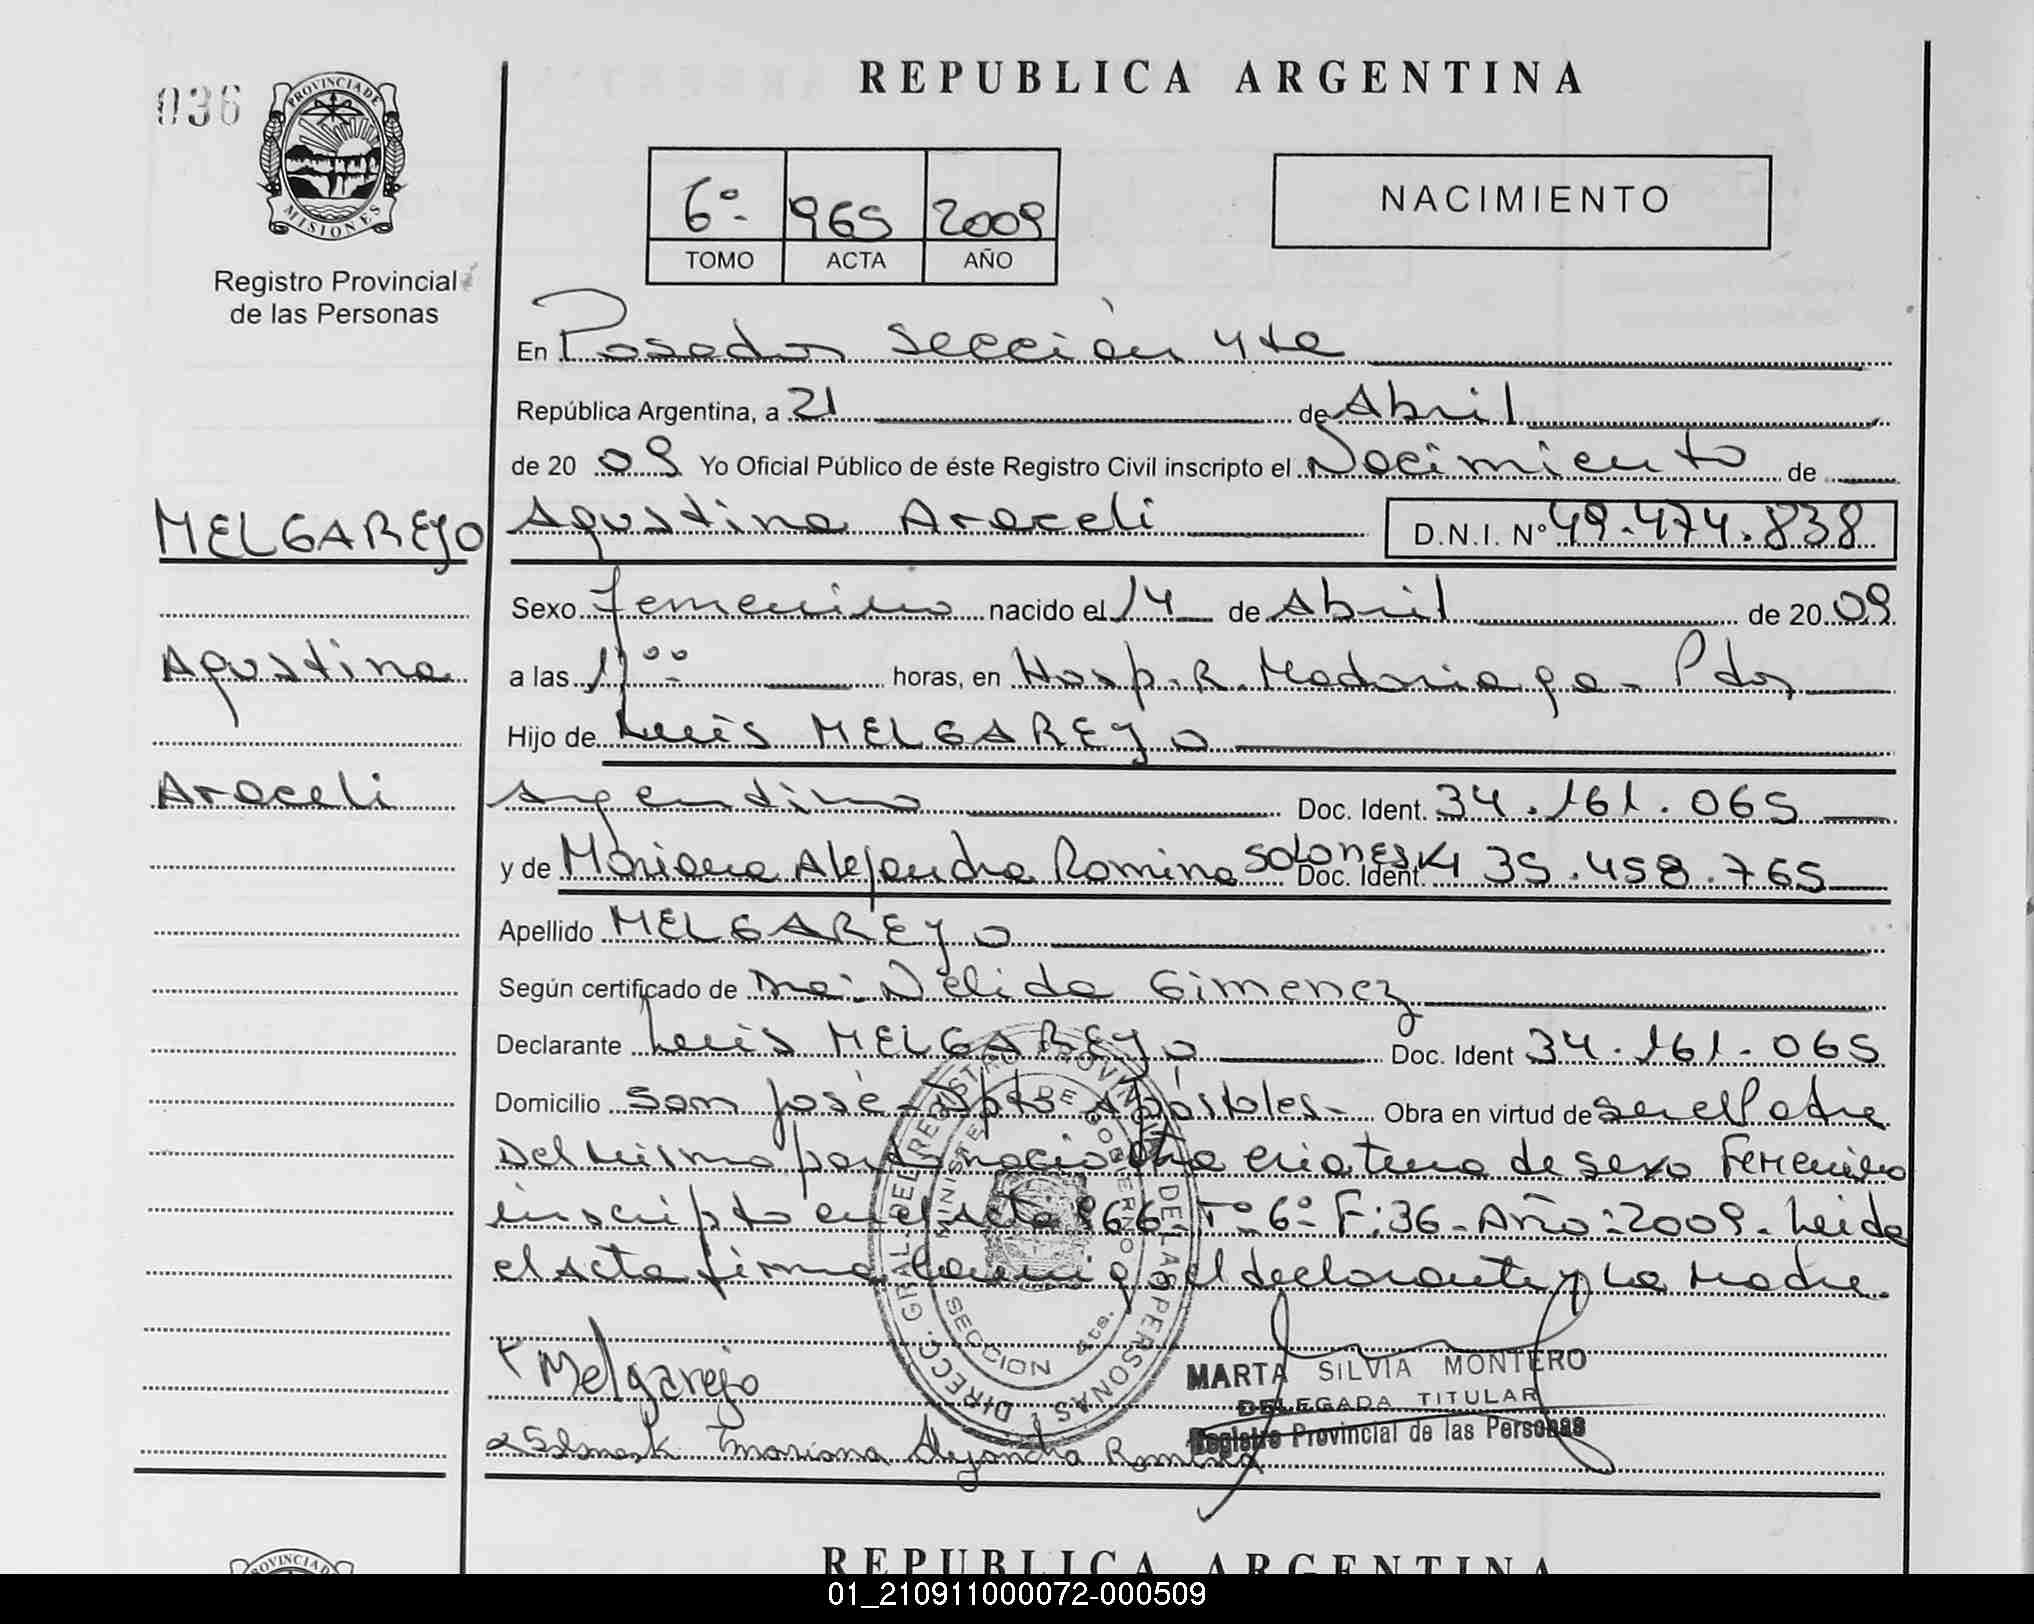 036
PROVINCIA DE
MISIONES
Registro Provincial
de las Personas
REPUBLICA ARGENTINA
6º 965 2009
TOMO ACTA AÑO
NACIMIENTO
En Posadas Sección 4ta
República Argentina, a 21 de Abril
de 20 09 Yo Oficial Público de éste Registro Civil inscripto el Nacimiento de
MELGAREJO
Agustina Araceli D.N.I. Nº 49.474.838
Sexo femenino nacido el 14 de Abril de 20 09
Agustina
a las 17ºº horas, en Hosp. R. Madariaga - Pdas
Hijo de Luis MELGAREJO
Araceli
Argentino Doc. Ident. 34.161.065
y de Mariana Alejandra Romina SOLONESKI Doc. Ident. 35.458.765
Apellido MELGAREJO
Según certificado de Dra: Nélida Gimenez
Declarante Luis MELGAREJO Doc. Ident 34.161.065
Domicilio San José - Dpto Apóstoles - Obra en virtud de ser el Padre
Del mismo parto nació otra criatura de sexo Femenino
inscripto en el Acta 966 Tº 6º F: 36 - Año: 2009 - Leida
el Acta firma conmigo el declarante y La Madre.
Melgarejo
MARTA SILVIA MONTERO
DELEGADA TITULAR
Registro Provincial de las Personas
Mariana Alejandra Romina
DIRECC. GRAL. DEL REGISTRO PROVINCIAL DE LAS PERSONAS
MINISTERIO DE GOBIERNO
SECCION 4ta.
PROVINCIA D
REPUBLICA ARGENTINA
01_210911000072-000509